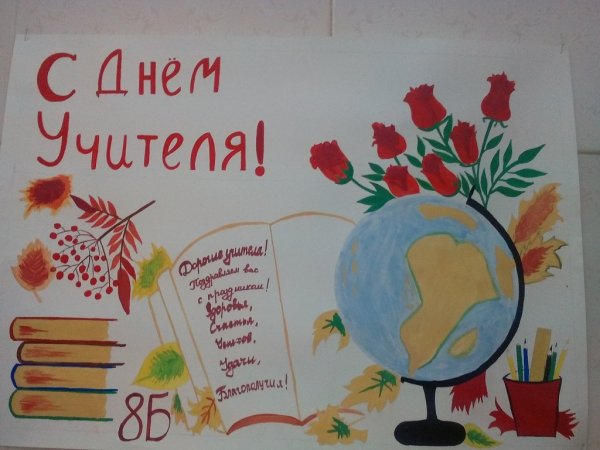 С Днём
Учителя!
Дорогие учителя!
Поздравляем вас
с праздником!
Здоровья,
Счастья,
Успехов,
Удачи,
Благополучия!
8Б